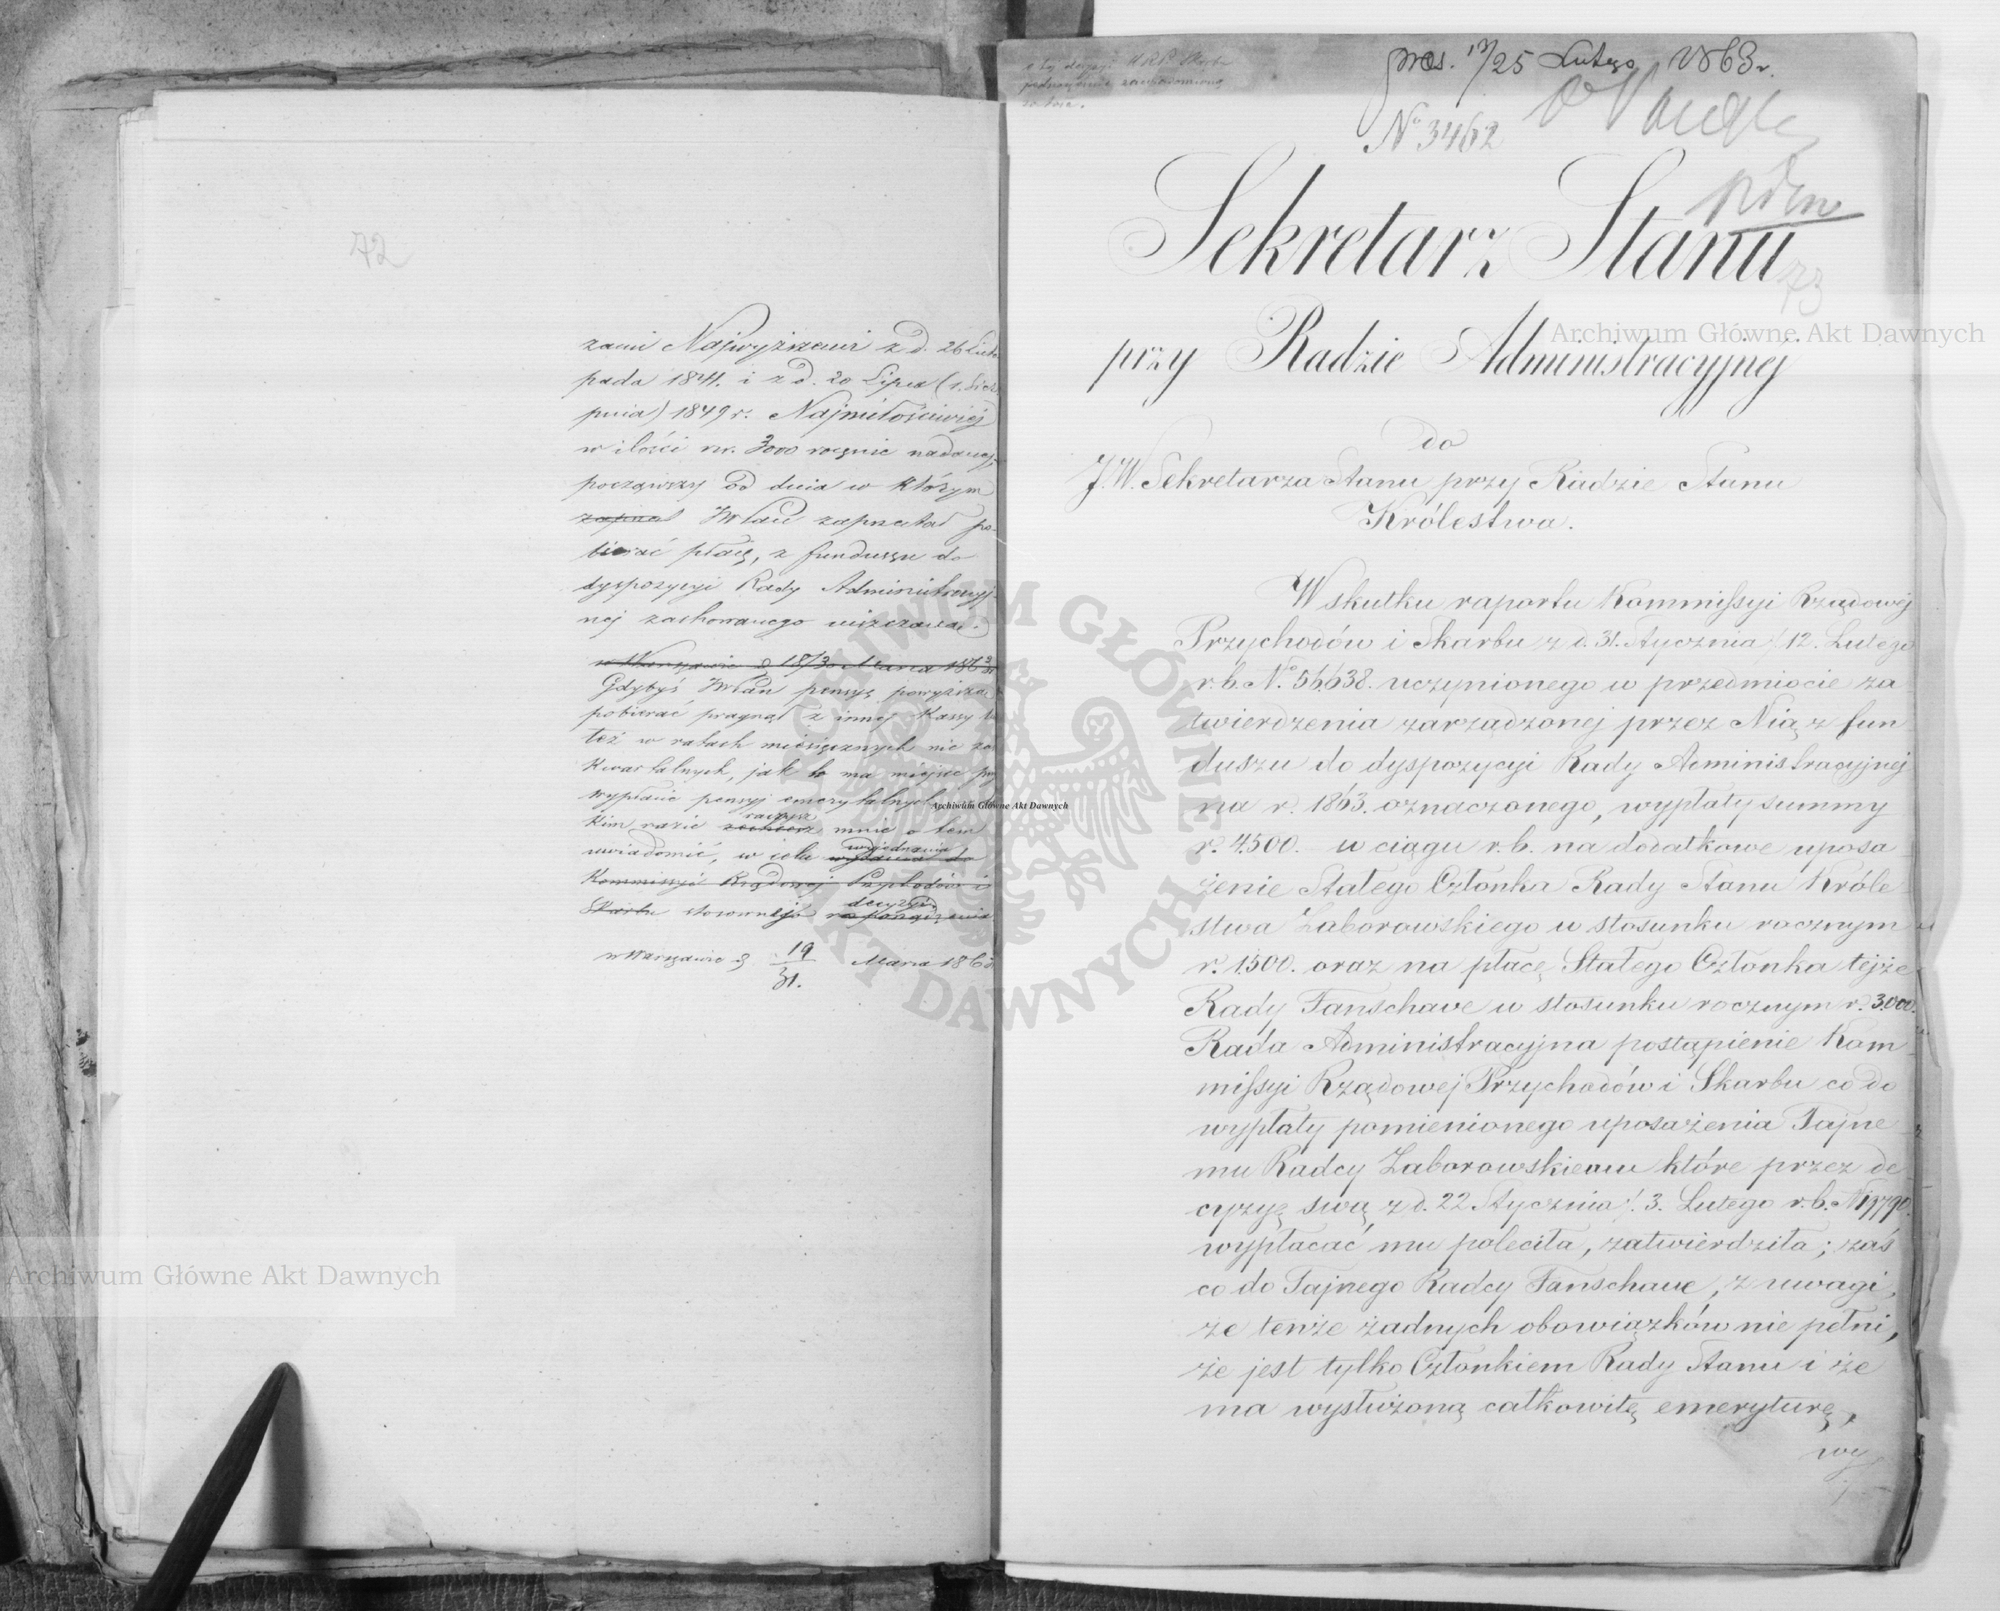 72
zami Najwyższemi z d. 26 Listo
pada 1841. i z d. 20 Lipca (1. Sier
pnia) 1849 r. Najmiłościwiej
w ilości rsr. 3000 rocznie nadanej,
począwszy od dnia w którym
zaprzał JWPan zaprzestał po-
bierać płacę, z funduszu do
dyspozycyi Rady Administracyj-
nej zachowanego
w Warszawie d. 18/30 Marca 1863
Gdybyś JWPan pensyę powyższą
pobierać pragnął z innej Kassy lub
też w ratach miesięcznych nie zaś
kwartalnych, jak to ma miejsce przy
wypłacie pensyj emerytalnych
kim razie raczysz mnie o tem
uwiadomić, w celu wyjednania
Kommissyi Rządowej Przychodów i
Skarbu stosownej decyzyi
w Warszawie d. 19/31. Marca 1863
pres. 13/25 Lutego 1863 r.
No 3462
73
Sekretarz Stanu
przy Radzie Administracyjnej
do
J.W. Sekretarza Stanu przy Radzie Stanu
Królestwa.
W skutku raportu Kommissyi Rządowej
Przychodów i Skarbu z d. 31. Stycznia / 12. Lutego
r. b. No. 56,638. uczynionego w przedmiocie za
twierdzenia zarządzonej przez Nią z fun
duszu do dyspozycyi Rady Administracyjnej
na r. 1863. oznaczonego, wypłaty summy
r. 4500. w ciągu r. b. na dodatkowe uposa
żenie Stałego Członka Rady Stanu Króle
stwa Zaborowskiego w stosunku rocznym
r. 1500. oraz na płacę Stałego Członka tejże
Rady Fanschave w stosunku rocznym r. 3,000.
Rada Administracyjna postąpienie Kom
missyi Rządowej Przychodów i Skarbu co do
wypłaty pomienionego uposażenia Tajne
mu Radcy Zaborowskiemu które przez de
cyzyę swą z d. 22 Stycznia / 3. Lutego r. b.
wypłacać mu poleciła, zatwierdziła; zaś
co do Tajnego Radcy Fanschave, z uwagi,
że tenże żadnych obowiązków nie pełni,
że jest tylko Członkiem Rady Stanu i że
ma wysłużoną całkowitą emeryturę,
wy
Archiwum Główne Akt Dawnych
Archiwum Główne Akt Dawnych
Archiwum Główne Akt Dawnych
ARCHIWUM GŁÓWNE AKT DAWNYCH